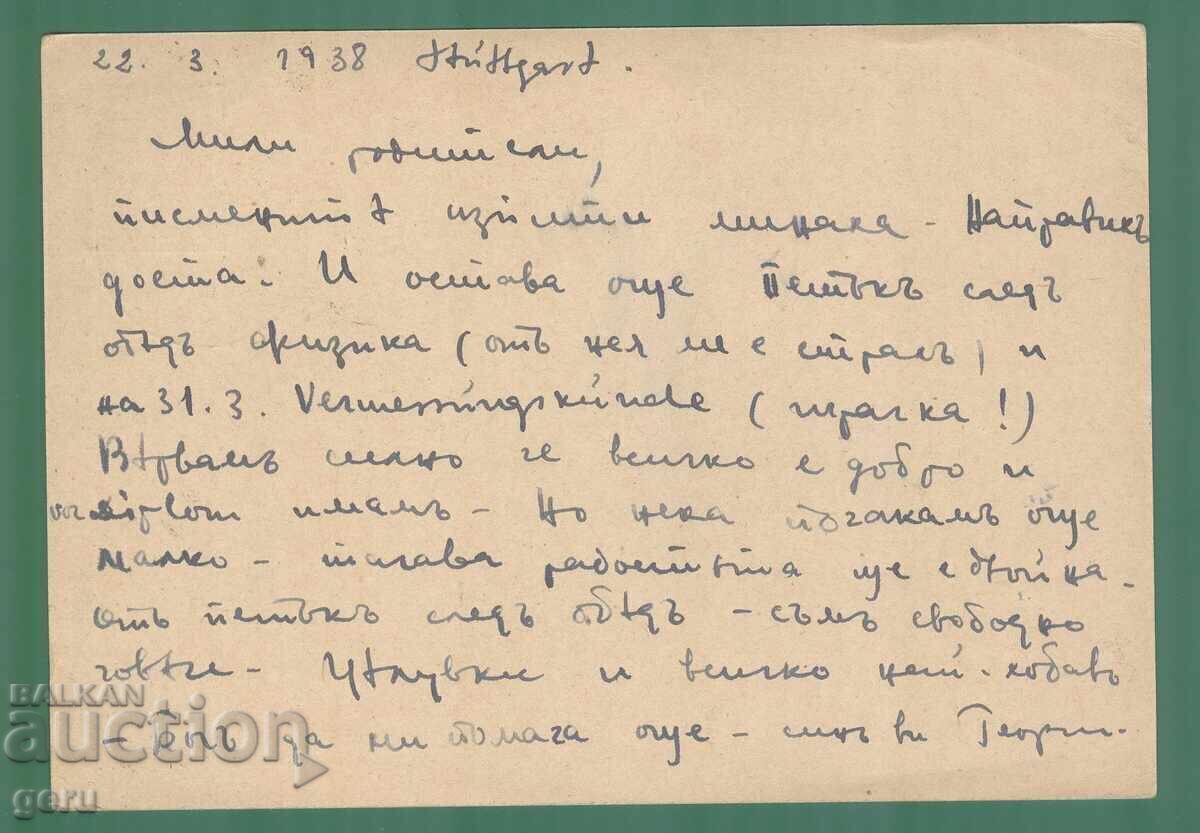 22. 3. 1938 Stuttgart.
Мили родители,
писменитѣ изпити минаха - Направихъ
доста. И остава още Петъкъ следъ
обѣдъ физика (отъ нея ме е страхъ) и
на 31. 3. Vermessungskunde (играчка!)
Вѣрвамъ силно че всичко е добро и
vordiplom имамъ - Но нека почакамъ още
малко - тогава радостьта ще е двойна.
Отъ петъкъ следъ обѣдъ - съмъ свободно
човѣче - Цѣлувки и всичко най-хубаво
- Богъ да ни помага още - синъ ви Георги.
BALKAN
auction
geru